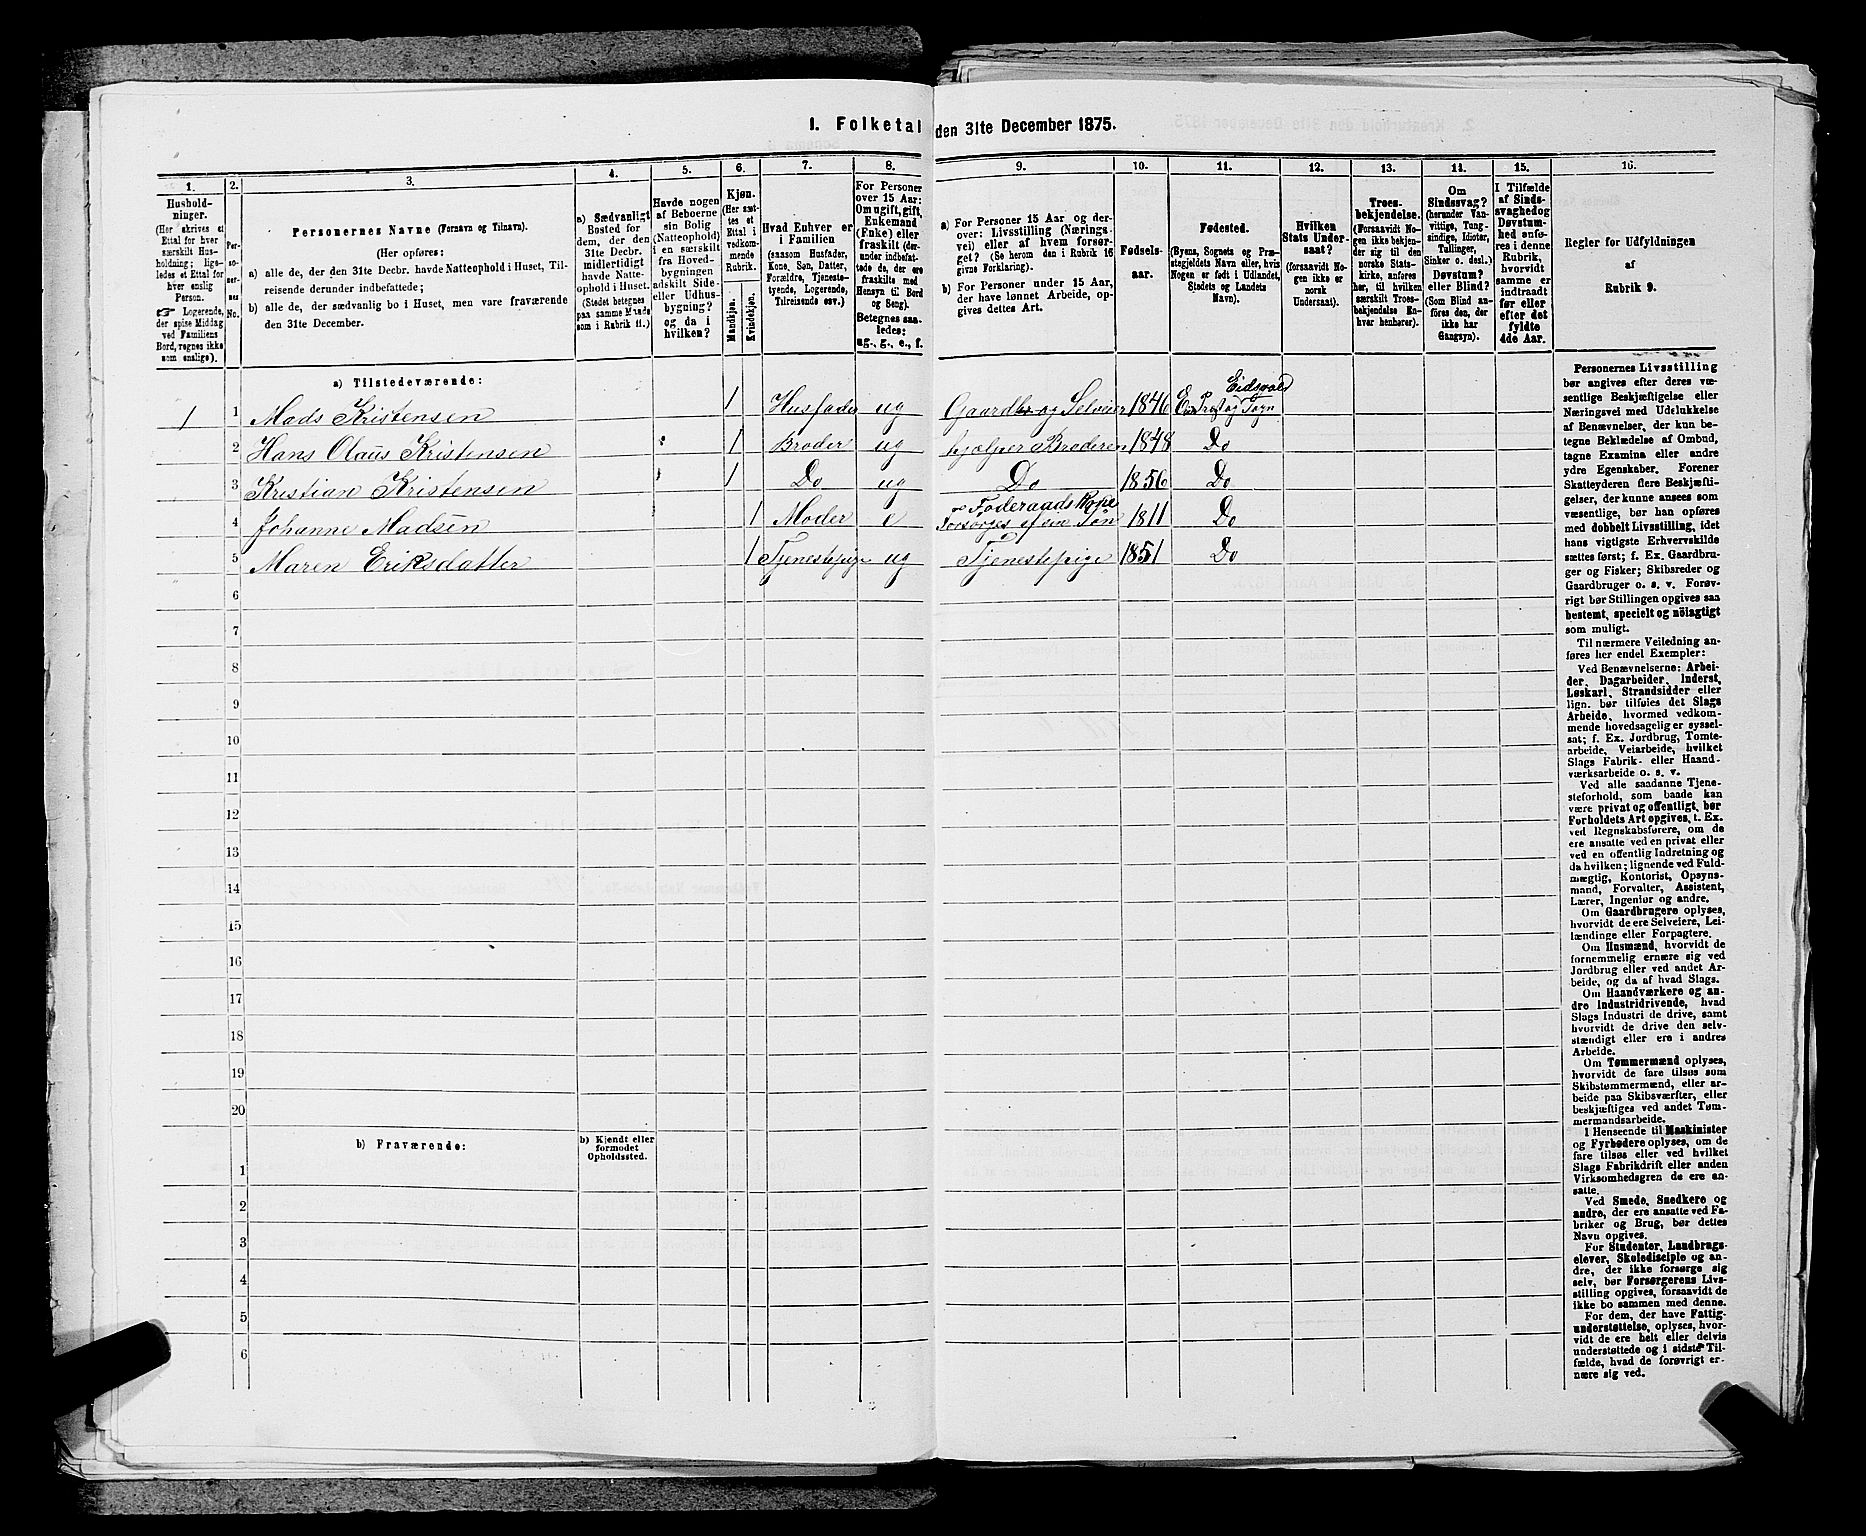 1. Folketal den 31te December 1875.
1.
2.
3.
4.
5.
6.
7.
8.
9.
10.
11.
12.
13.
14.
15.
16.
Hushold-
ninger.
(Her skrives et
Ettal for hver
særskilt Hus-
holdning; lige-
ledes et Ettal for
hver enslig
Person.
☞ Logerende,
der spise Middag
ved Familiens
Bord, regnes ikke
som enslige).
Per-
so-
ner-
nes
No.
Personernes Navne (Fornavn og Tilnavn).
(Her opføres:
a) alle de, der den 31te Decbr. havde Natteophold i Huset, Til-
reisende derunder indbefattede;
b) alle de, der sædvanlig bo i Huset, men vare fraværende
den 31te December.
a) Sædvanligt
Bosted for
dem, der den
31te Decbr.
midlertidigt
havde Natte-
ophold i Huset.
(Stedet betegnes
paa samme Maade
som i Rubrik 11.)
Havde nogen
af Beboerne
sin Bolig
(Natteophold)
i en særskilt
fra Hoved-
bygningen
adskilt Side-
eller Udhus-
bygning?
og da i
hvilken?
Kjøn.
(Her sæt-
tes et
Ettal i
vedkom-
mende
Rubrik.
Mandkjøn.
Kvindekjøn.
Hvad Enhver er
i Familien
(saasom Husfader,
Kone, Søn, Datter,
Forældre, Tjeneste-
tyende, Logerende,
Tilreisende osv.)
For Personer
over 15 Aar:
Om ugift, gift,
Enkemand
(Enke) eller
fraskilt (der-
under indbefat-
tede de, der ere
fraskilte med
Hensyn til Bord
og Seng).
Betegnes saa-
ledes:
ug., g., e., f.
a) For Personer 15 Aar og der-
over: Livsstilling (Nærings-
vei) eller af hvem forsør-
get? (Se herom den i Rubrik 16
givne Forklaring).
b) For Personer under 15 Aar,
der have lønnet Arbeide, op-
gives dettes Art.
Fødsels-
aar.
Fødested.
(Byens, Sognets og Præ-
stegjeldets Navn eller, hvis
Nogen er født i Udlandet,
Stedets og Landets
Navn).
Hvilken
Stats Under-
saat?
(forsaavidt No-
gen ikke er
norsk
Undersaat).
Troes-
bekjendelse.
(Forsaavidt Nogen
ikke bekjen-
der sig til den
norske Stats-
kirke, anføres
her, til hvilken
særskilt Troes-
bekjendelse En-
hver henhører).
Om
Sindssvag?
(herunder Van-
vittige, Tung-
sindige, Idioter,
Tullinger,
Sinker o. desl.)
Døvstum?
eller Blind?
(Som Blind an-
føres den, der
ikke har
Gangsyn).
I Tilfælde
af Sinds-
svaghed og
Døvstum-
hed anfø-
res i denne
Rubrik,
hvorvidt
samme er
indtraadt
før eller
efter det
fyldte
4de Aar.
Regler for Udfyldningen
af
Rubrik 9.
a) Tilstedeværende:
1 1 Mads Kristensen 1 Husfader ug Gaardbr og Selveier 1846 Eidsvold Præst og Sogn
2 Hans Olaus Kristensen 1 Broder ug hjælper Broderen 1848 Do
3 Kristian Kristensen 1 Do ug Do 1856 Do
4 Johanne Madsen 1 Moder e Føderaads Kone Forsørges af sin Søn 1811 Do
5 Maren Eriksdatter 1 Tjenestepige ug Tjenestepige 1851 Do
6
7
8
9
10
11
12
13
14
15
16
17
18
19
20
b) Fraværende:
b) Kjendt eller
formodet
Opholdssted.
1
2
3
4
5
6
Personernes Livsstilling
bør angives efter deres væ-
sentlige Beskjæftigelse eller
Næringsvei med Udelukkelse
af Benævnelser, der kun be-
tegne Beklædelse af Ombud,
tagne Examina eller andre
ydre Egenskaber. Forener
Skatteyderen flere Beskjæfti-
gelser, der kunne ansees som
væsentlige, bør han opføres
med dobbelt Livsstilling, idet
hans vigtigste Erhvervskilde
sættes først; f. Ex. Gaardbru-
ger og Fisker; Skibsreder og
Gaardbruger o. s. v. Forøv-
rigt bør Stillingen opgives saa
bestemt, specielt og nöiagtigt
som muligt.
Til nærmere Veiledning an-
føres her endel Exempler:
Ved Benævnelserne: Arbei-
der, Dagarbeider, Inderst,
Løskarl, Strandsidder eller
lign. bør tilføies det Slags
Arbeide, hvormed vedkom-
mende hovedsagelig er syssel-
sat; f. Ex. Jordbrug, Tomte-
arbeide, Veiarbeide, hvilket
Slags Fabrik- eller Haand-
værksarbeide o. s. v.
Ved alle saadanne Tjene-
steforhold, som baade kan
være privat og offentligt, bør
Forholdets Art opgives, t. Ex.
ved Regnskabsførere, om de
ere ansatte ved en privat eller
ved en offentlig Indretning og
da hvilken; lignende ved Fuld-
mægtig, Kontorist, Opsyns-
mand, Forvalter, Assistent,
Lærer, Ingeniør og andre.
Om Gaardbrugere oplyses,
hvorvidt de ere Selveiere, Lei-
lændinge eller Forpagtere.
Om Husmænd, hvorvidt de
fornemmelig ernære sig ved
Jordbrug eller ved andet Ar-
beide, og da af hvad Slags.
Om Haandværkere og an-
dre Industridrivende, hvad
Slags Industri de drive, samt
hvorvidt de drive den selv-
stændigt eller ere i andres
Arbeide.
Om Tømmermænd oplyses,
hvorvidt de fare tilsøs som
Skibstømmermænd, eller ar-
beide paa Skibsværfter, eller
beskjæftiges ved andet Tøm-
mermandsarbeide.
I Henseende til Maskinister
og Fyrbødere oplyses, om de
fare tilsøs eller ved hvilket
Slags Fabrikdrift eller anden
Virksomhedsgren de ere an-
satte.
Ved Smede, Snedkere og
andre, der ere ansatte ved Fa-
briker og Brug, bør dettes
Navn opgives.
For Studenter, Landbrugs-
elever, Skoledisciple og an-
dre, der ikke forsørge sig
selv, bør Forsørgerens Livs-
stilling opgives, forsaavidt de
ikke bo sammen med denne.
For dem, der have Fattig-
understøttelse, oplyses, hvor-
vidt de ere helt eller delvis
understøttede og i sidste Til-
fælde, hvad de forøvrigt er-
nære sig ved.